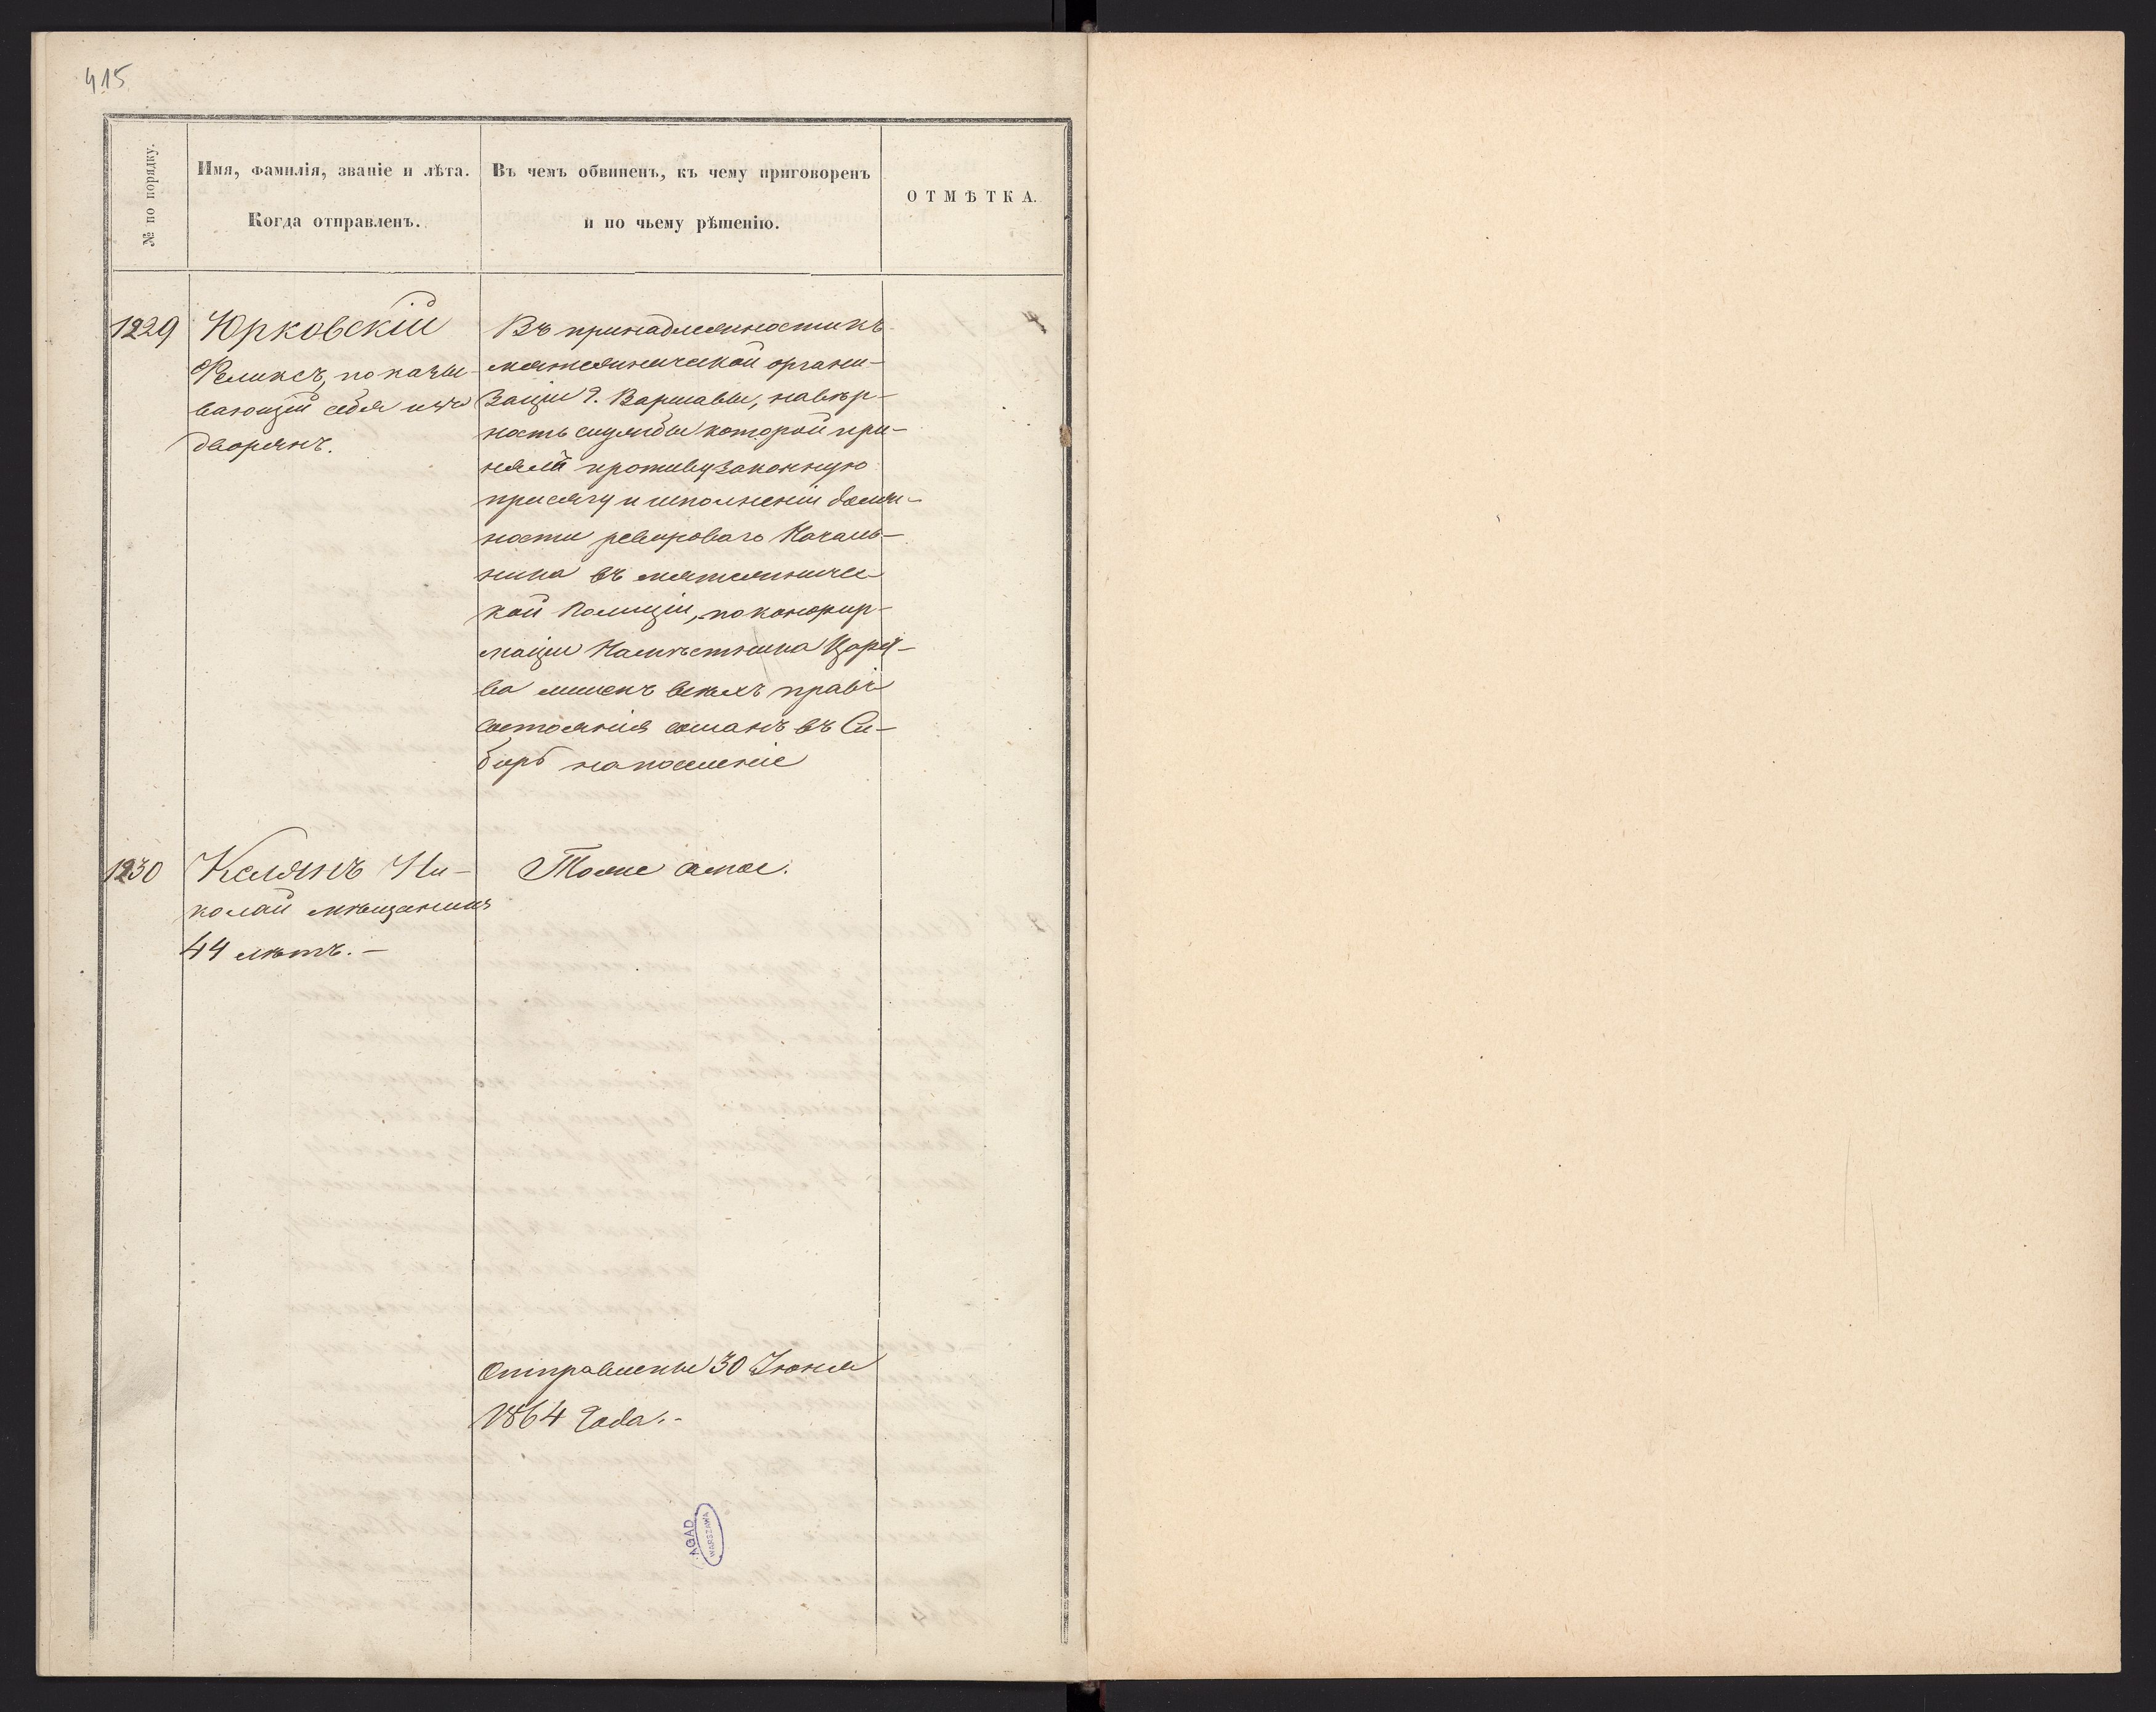 415
№ по порядку.
Имя, фамилія, званіе и лѣта.
Когда отправленъ.
Въ чемъ обвиненъ, къ чему приговоренъ
и по чьему рѣшенію.
ОТМѢТКА.
1229
Юрковскій
Феликсъ, показы-
вающій себя изъ
дворянъ.
Въ принадлежности къ
мятежнической органи-
заціи г. Варшавы, на вѣр-
ность службы которой при-
нялъ противузаконную
присягу и исполненіи долж-
ности ревироваго Началь-
ника въ мятежничес
кой Полиціи, по конфир-
маціи Намѣстника Царст-
ва лишенъ всѣхъ правъ
состоянія сосланъ въ Си-
бирь на поселеніе
1230
Келянъ Ни-
колай мѣщанинъ
44 лѣтъ. —
Тоже самое.
Отправлены 30 Іюня
1864 Года. -
AGAD
WARSZAWA